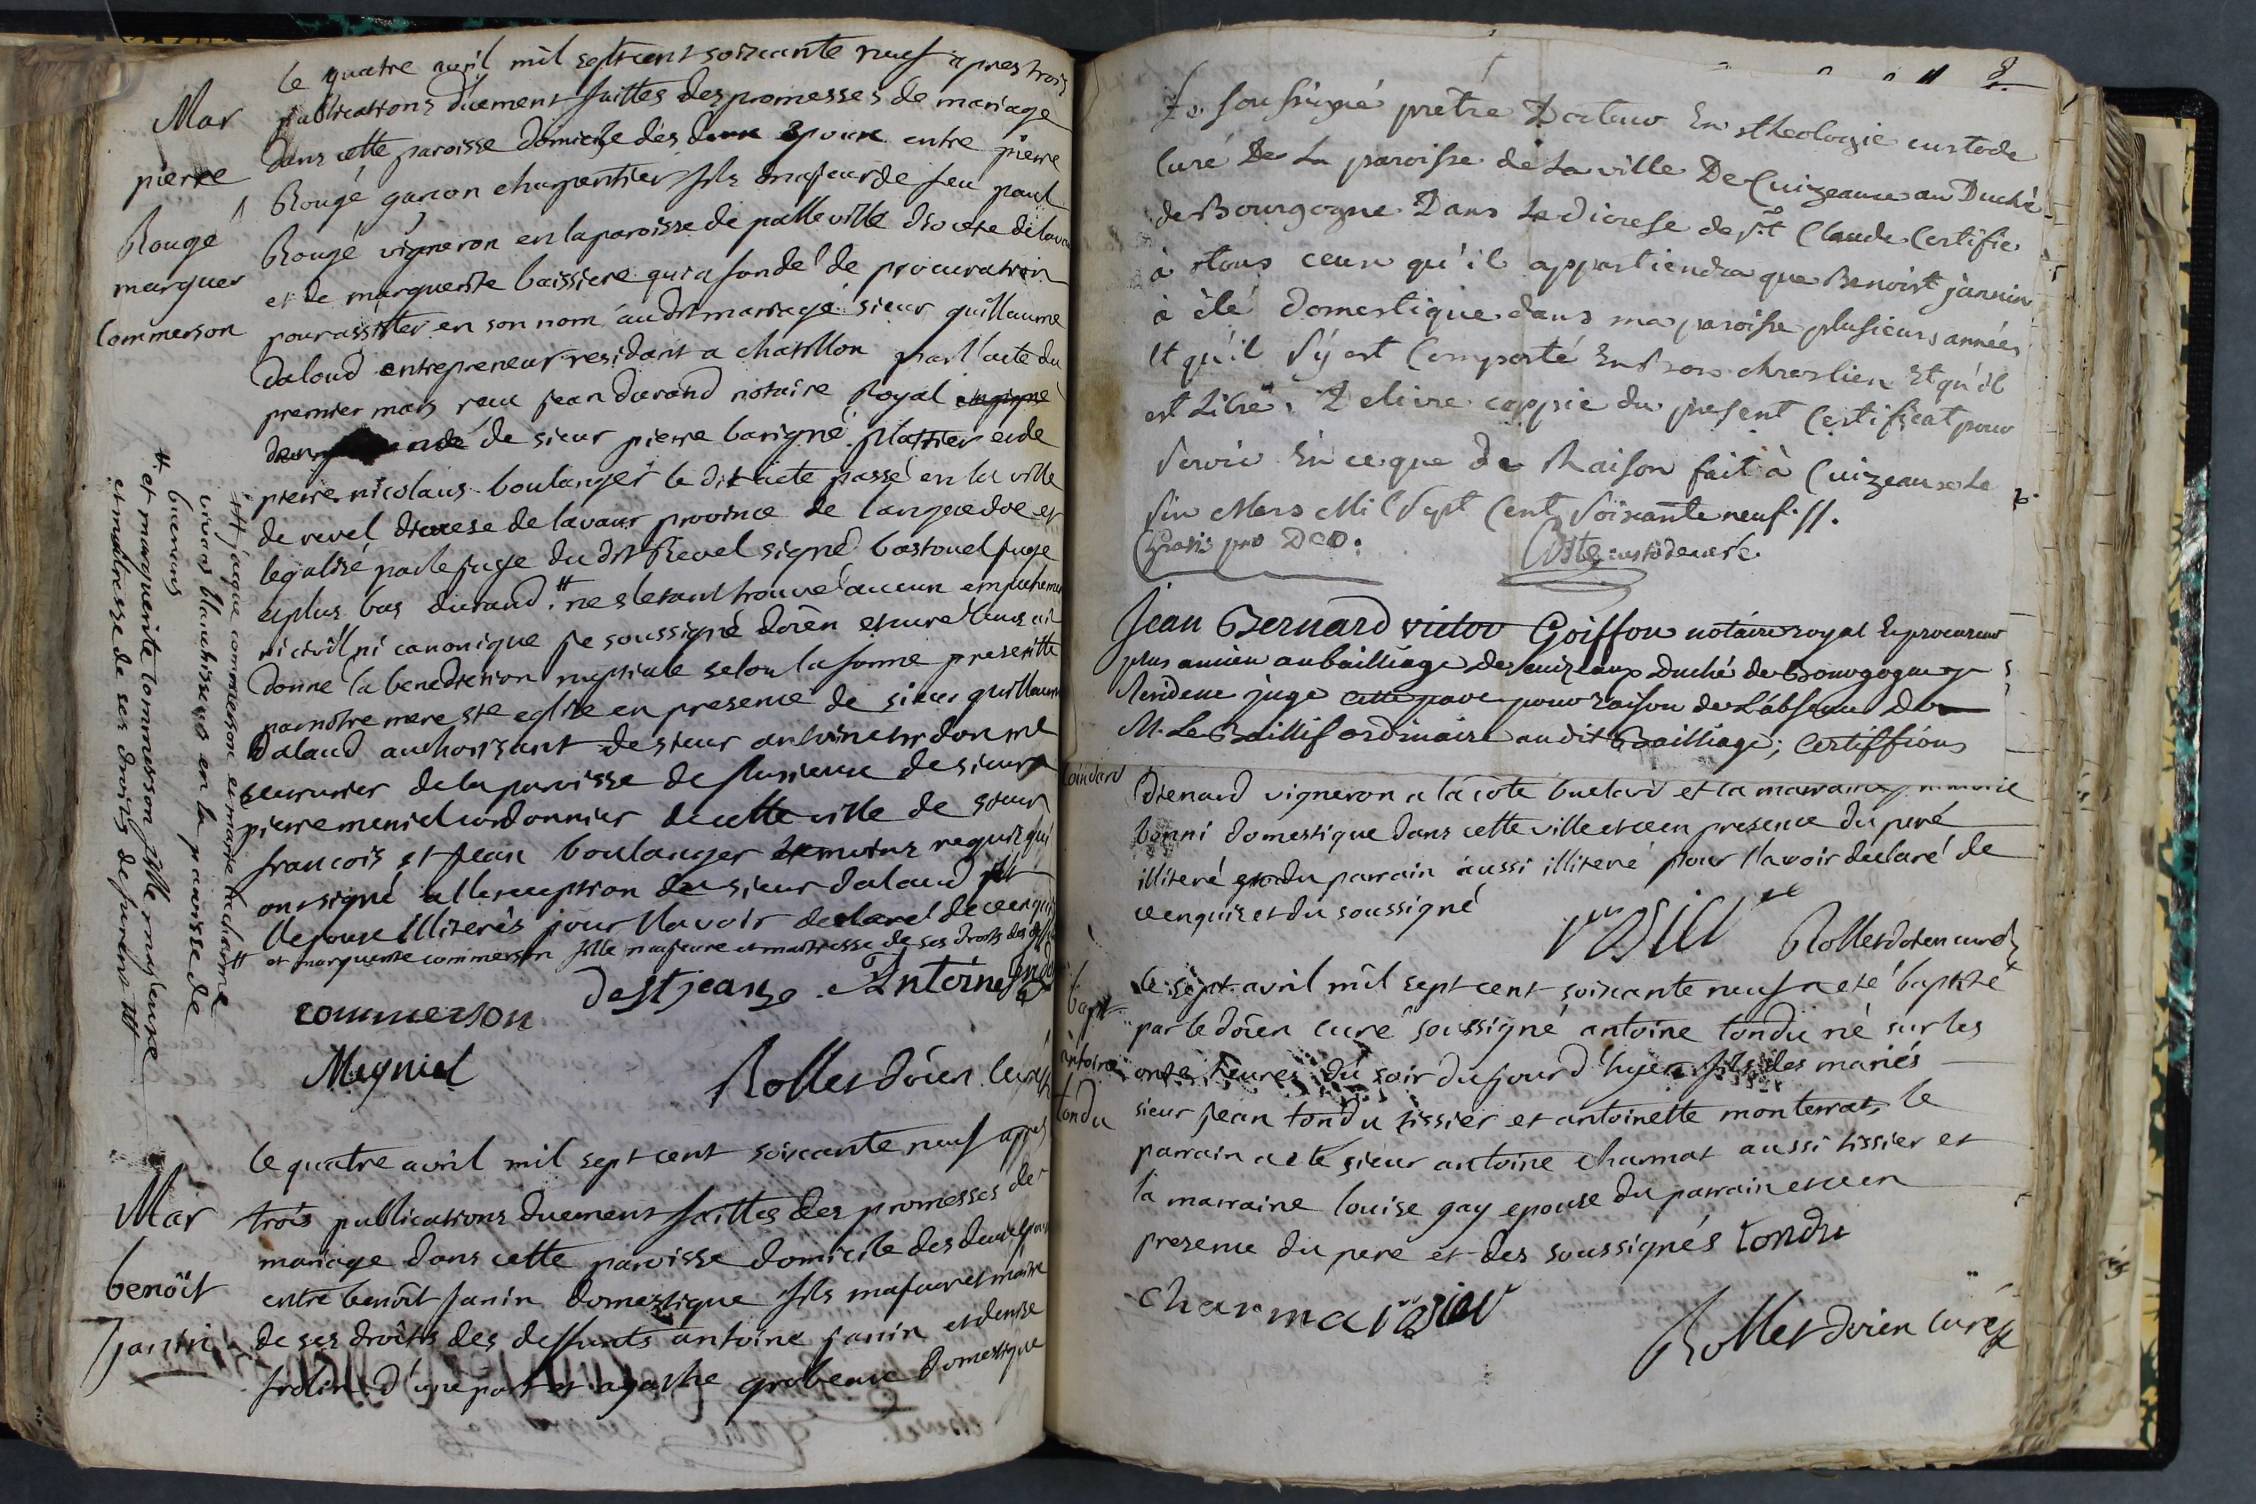 le quatre avril mil sept cent soixante neuf apres trois
publications duement faittes des promesses de mariage
dans cette paroisse domicile des deux epoux entre pierre
Rougé garcon charpentier fils majeur de feu paul
Rougé vigneron en la paroisse de palleville diocese de lavaur
et de marguerite baissiere qui a fondé de procuration
pour assister en son nom audit mariage sieur guillaume
dalaud entrepreneur residant a chatillon par l'acte du
premier mars recu jean durand notaire Royal
de sieur pierre barigné platrier et de
pierre nicolaus boulanger le dit acte passé en la ville
de revel diocese de lavaur province de languedoc et
legalisé par le juge du dit Revel signé bastouel juge
et plus bas durand. # ne s'etant trouvé aucun empechement
ni civil ni canonique je soussigné doïen et curé leurs ai
donné la benediction nuptiale selon la forme prescritte
par notre mere ste eglise en presence de sieur guillaume
Dalaud authorisant de sieur antoine
serrurier de la paroisse de de sieur
pierre meniel cordonnier de cette ville de sieur
francois st jean boulanger temoins requis qui
ont signé a l'exception du sieur dalaud et
l'epouse illiterés pour l'avoir declaré de ce enquis
et marguerite commerson fille majeure et maitresse de ses droits des
commerson
Destjean
Antoine
Megniel
Rollet doïen curé
Mar
pierre
Rougé
marguer
Commerson
# et marguerite commerson fille majeure
et maitresse de ses droits de
jacque commerson et marie
vivans blanchisseus en la paroisse de
le quatre avril mil sept cent soixante neuf apres
trois publications duement faittes des promesses de
mariage dans cette paroisse domicile des deux epoux
entre benoît janin domestique fils majeur et maitre
de ses droits des deffunts antoine janin et denise
frolin d'une part et agathe grobeaux domestique
Mar
benôit
janin
8.
Je soussigné prêtre Docteur En theologie custode
Curé De La paroisse de La ville De Cuizeaux au Duché
de Bourgogne Dans Le Diocese de st Claude Certifie
à tous ceux qu'il appartiendra que Benoist jannin
à été domestique dans ma paroisse plusieurs années
Et qu'il s'y est Comporté En bon chrestien Et qu'il
est Libre, Delivré coppie du present Certificat pour
servir En ce que de Raison fait à Cuizeaux Le
six Mars Mil sept Cent soixante neuf.//.
Gratis pro Deo.
Coste custode curé
Jean Bernard victor Goiffon notaire royal & procureur
plus ancien au bailliage de cuizeaux Duché de Bourgogne y
Residene juge cette pour raison de L'absence De
M. Le Baillif ordinaire audit Bailliage; Certiffions
Dienard vigneron a la cote buelard et la marraine marie
bonni domestique dans cette ville et ce en presence du peré
illiteré et du parrain aussi illiteré pour l'avoir declaré de
ce enquis et du soussigné
Rollet doïen curé
bapt
antoine
tondu
le sept avril mil sept cent soixante neuf a eté baptisé
par le doïen curé soussigné antoine tondu né sur les
onze heures du soir du jour d'hyer fils des mariés
sieur jean tondu tissier et antoinette monterrat, le
parrain a eté sieur antoine charmat aussi tissier et
la marraine louise gay epouse du parrain et ce en
presence du pere et des soussignés tondu
charmat
Rollet doïen curé